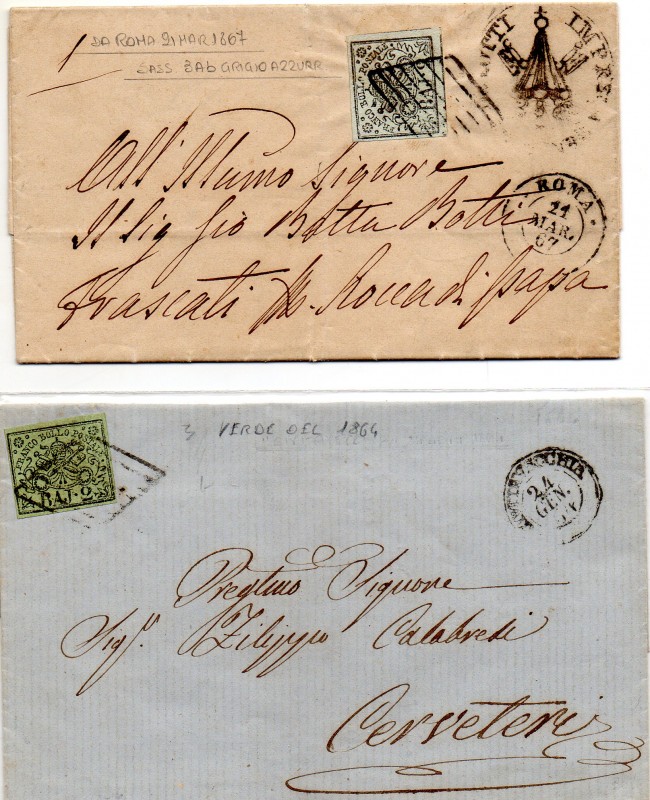 DA ROMA 21 MAR 1867
SASS 3Ab GRIGIO AZZURR
FRANCO BOLLO POSTALE
BOTTI IMPRESA
ROMA
21
MAR.
67
All'Illumo Signore
Il Sig Gio Batta Botti
Frascati Roccadipapa
3 VERDE DEL 1864
FRANCO BOLLO POSTALE
BAJ. 2
CIVITAVECCHIA
24
GEN.
64
Preglmo Signore
Sigr. Filippo Calabresi
Cerveteri